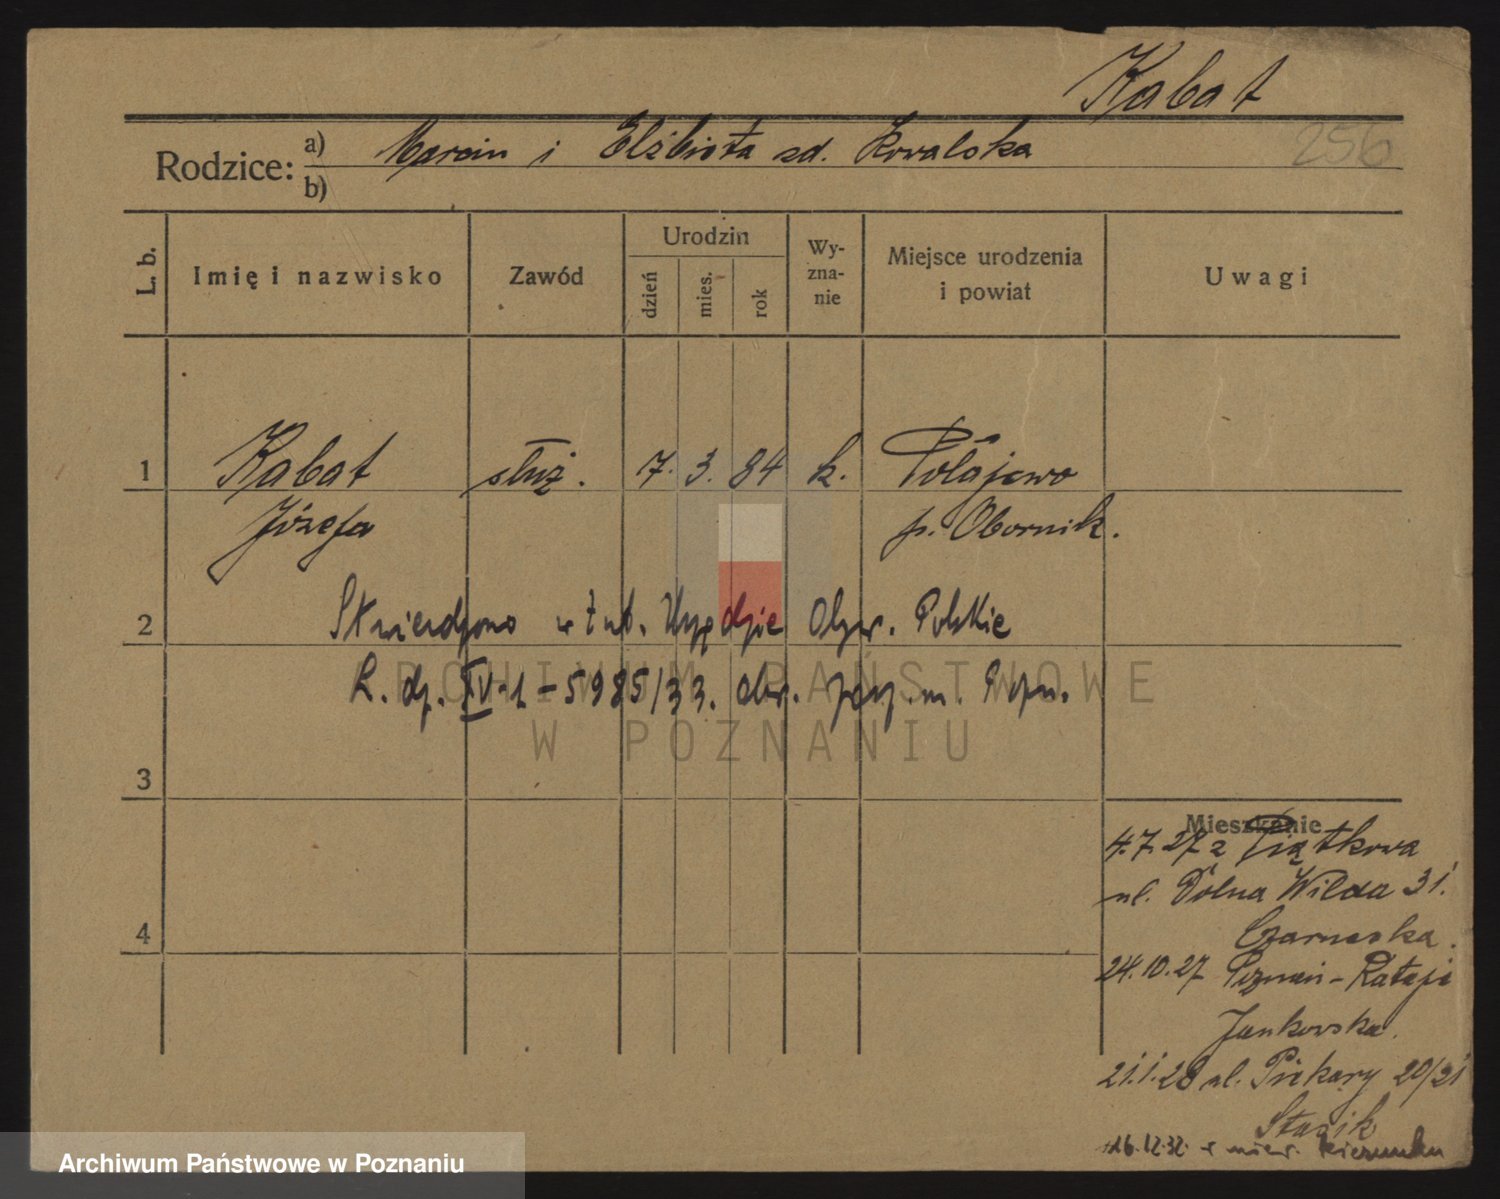 Kabat
256
Rodzice: a) Marcin i Elżbieta zd. Kowalska
b)
L. b.
Imię i nazwisko
Zawód
Urodzin
dzień
mies.
rok
Wy-
zna-
nie
Miejsce urodzenia
i powiat
Uwagi
1
Kabat służ. 7. 3. 84 k. Połajewo
Józefa p. Obornik.
2
Stwierdzono w tut. Urzędzie Obyw. Polskie
L. dz. IV-1-5985/33. Pozn.
ARCHIWUM PAŃSTWOWE
W POZNANIU
3
4
Mieszkanie
4.7.27 z Piątkowa
ul. Dolna Wilda 31.
Czarneska.
24.10.27 Poznań-Rataje
Jankowska.
21.1.28 ul. Piekary 20/21
Stasik
16.12.32 w niew. kierunku
Archiwum Państwowe w Poznaniu